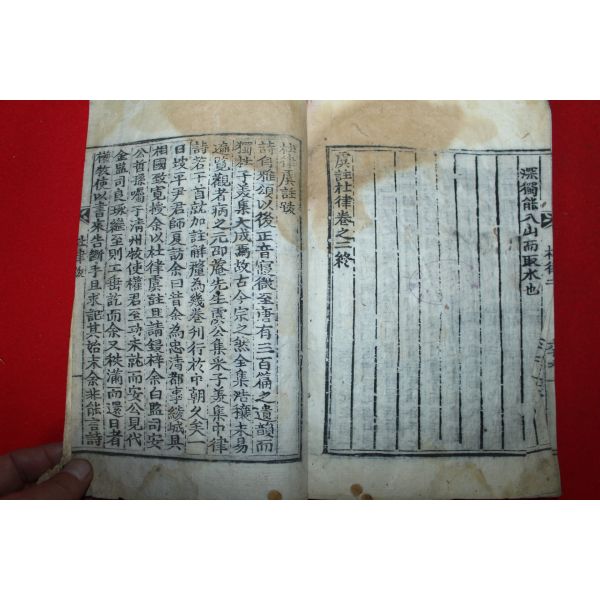 深獨能入山而取水也
虞註杜律卷之二終
杜律二
杜律虞註跋
詩自雅頌以後正音寢微至唐有三百篇之遺韻而
獨杜子美集大成焉故古今宗之然全集浩穰未易
遍覽觀者病之元邵菴先生虞公集采子美集中律
詩若干首就加註解釐為幾卷刊行於中朝久矣一
日坡平尹君師夏訪余曰昔余為忠清都事綾城具
相國致寬授余以杜律虞註且請鋟梓余白監司安
公首採囑于清州牧使權君至功未訖而安公見代
金監司良璥繼至則工垂訖而余又秩滿而還日者
權牧使以書來告斷手且求記其始末余非能言詩
杜律跋